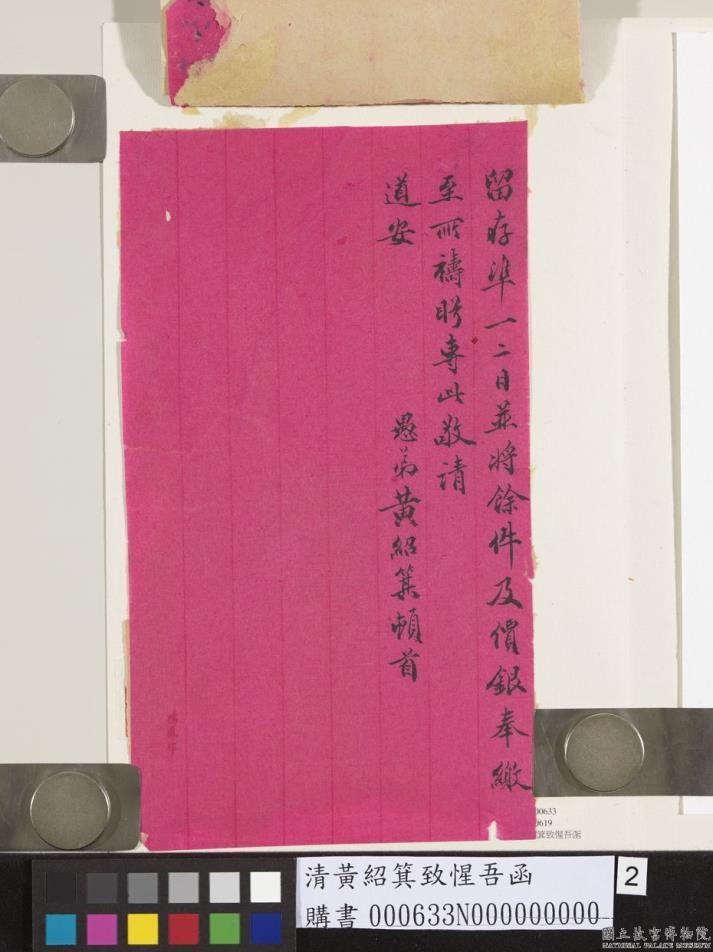 留存準一二日並將餘件及價銀奉繳
至所禱盼專此敬請
道安
愚弟黃紹箕頓首
00633
0619
箕致惺吾函
清黃紹箕致惺吾函
購書 000633N000000000
2
國立故宮博物院
NATIONAL PALACE MUSEUM